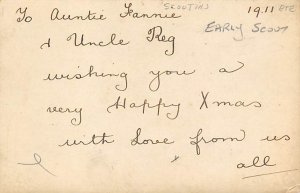 SCOUTING
To Auntie Fannie 19.11
& Uncle Reg EARLY SCOUT
wishing you a
very Happy Xmas
with Love from us
all